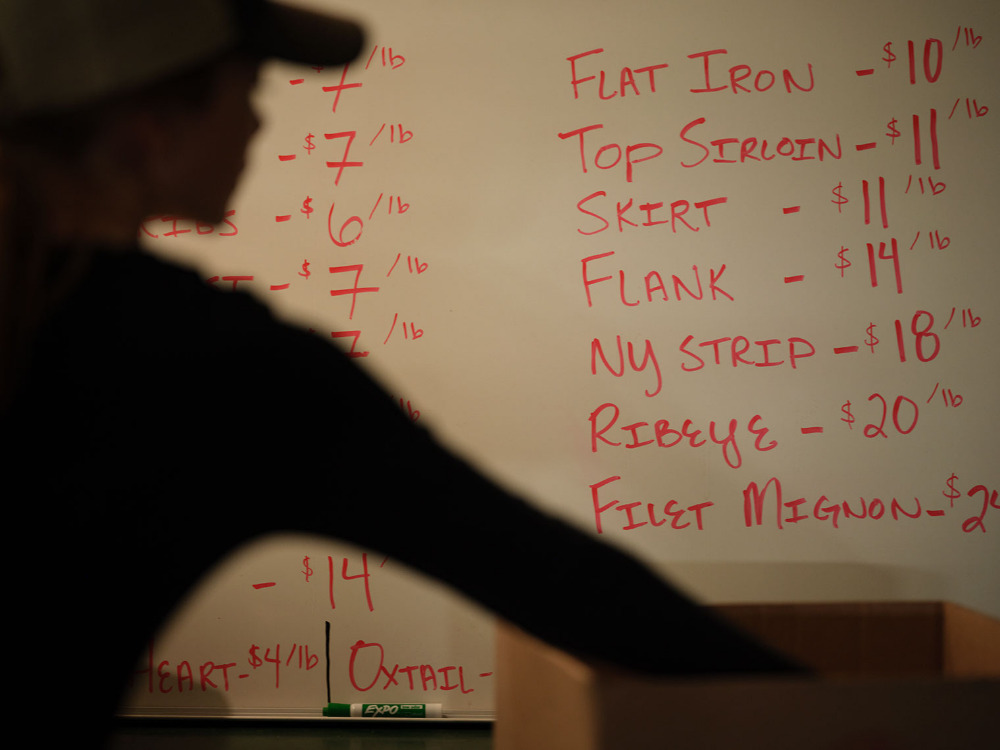 - $7/lb
- $7/lb
RIBS - $6/lb
- $7/lb
/lb
- $14
HEART - $4/lb | OXTAIL -
FLAT IRON - $10/lb
TOP SIRLOIN - $11/lb
SKIRT - $11/lb
FLANK - $14/lb
NY STRIP - $18/lb
RIBEYE - $20/lb
FILET MIGNON - $24
EXPO